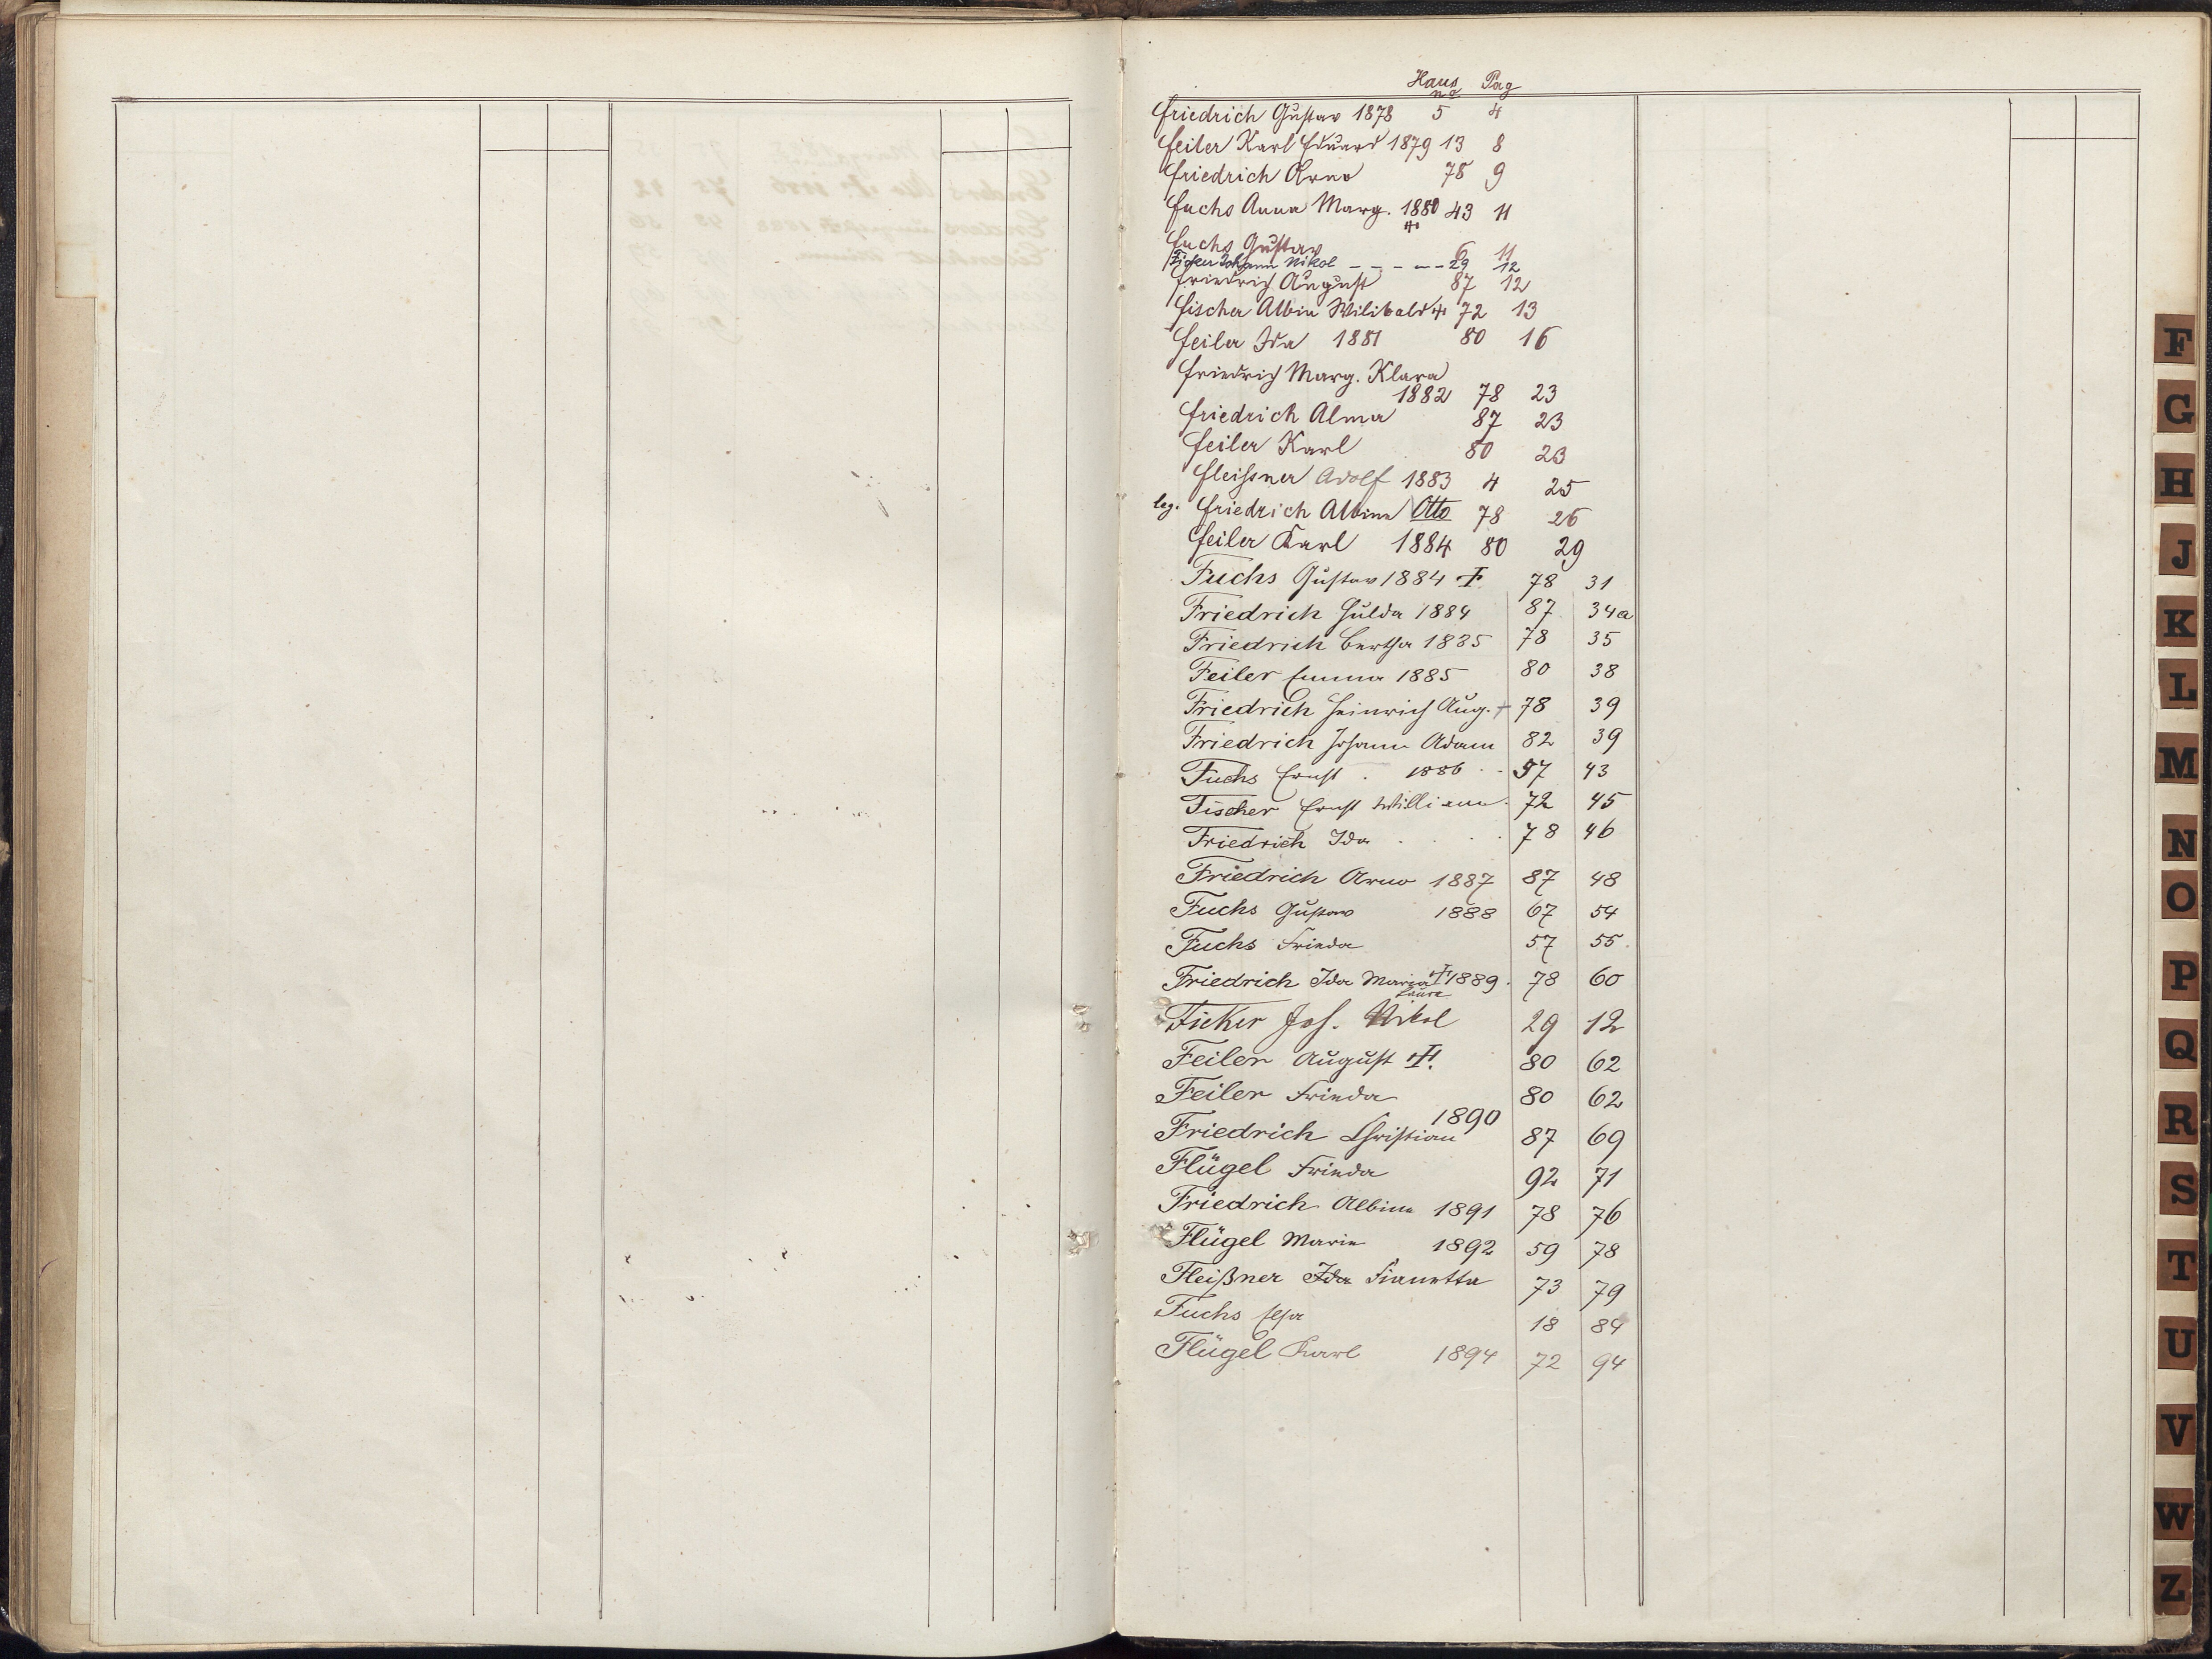 Haus Pag
no
Friedrich Gustav 1878 5 4
Feiler Karl Eduard 1879 13 8
Friedrich Arno 78 9
Fuchs Anna Marg. 1880 43 11
Fuchs Gustav 6 11
Ficker Johann Nikol - - - - - 29 12
Friedrich August 87 12
Fischer Albin Wilibald ☩ 72 13
Feiler Ida 1881 80 16
Friedrich Marg. Klara
1882 78 23
Friedrich Alma 87 23
Feiler Karl 80 23
Fleissner Adolf 1883 4 25
leg. Friedrich Albin Otto 78 26
Feiler Karl 1884 80 29
Fuchs Gustav 1884 ☩ 78 31
Friedrich Hulda 1884 87 34a
Friedrich Bertha 1885 78 35
Feiler Emma 1885 80 38
Friedrich Heinrich Aug. + 78 39
Friedrich Johann Adam 82 39
Fuchs Ernst . 1886 . . 57 43
Fischer Ernst William . 72 45
Friedrich Ida . . . 78 46
Friedrich Arno 1887 87 48
Fuchs Gustav 1888 67 54
Fuchs Frieda 57 55.
Friedrich Ida Maria ☩ 1889. 78 60
Laura
Ficker Joh. Nikol 29 12
Feiler August ☩. 80 62
Feiler Frieda 80 62
1890
Friedrich Christian 87 69
Flügel Frieda 92 71
Friedrich Albin 1891 78 76
Flügel Marie 1892 59 78
Fleißner Ida 73 79
Fuchs Elsa 18 84
Flügel Karl 1894 72 94
F
G
H
J
K
L
M
N
O
P
Q
R
S
T
U
V
W
Z